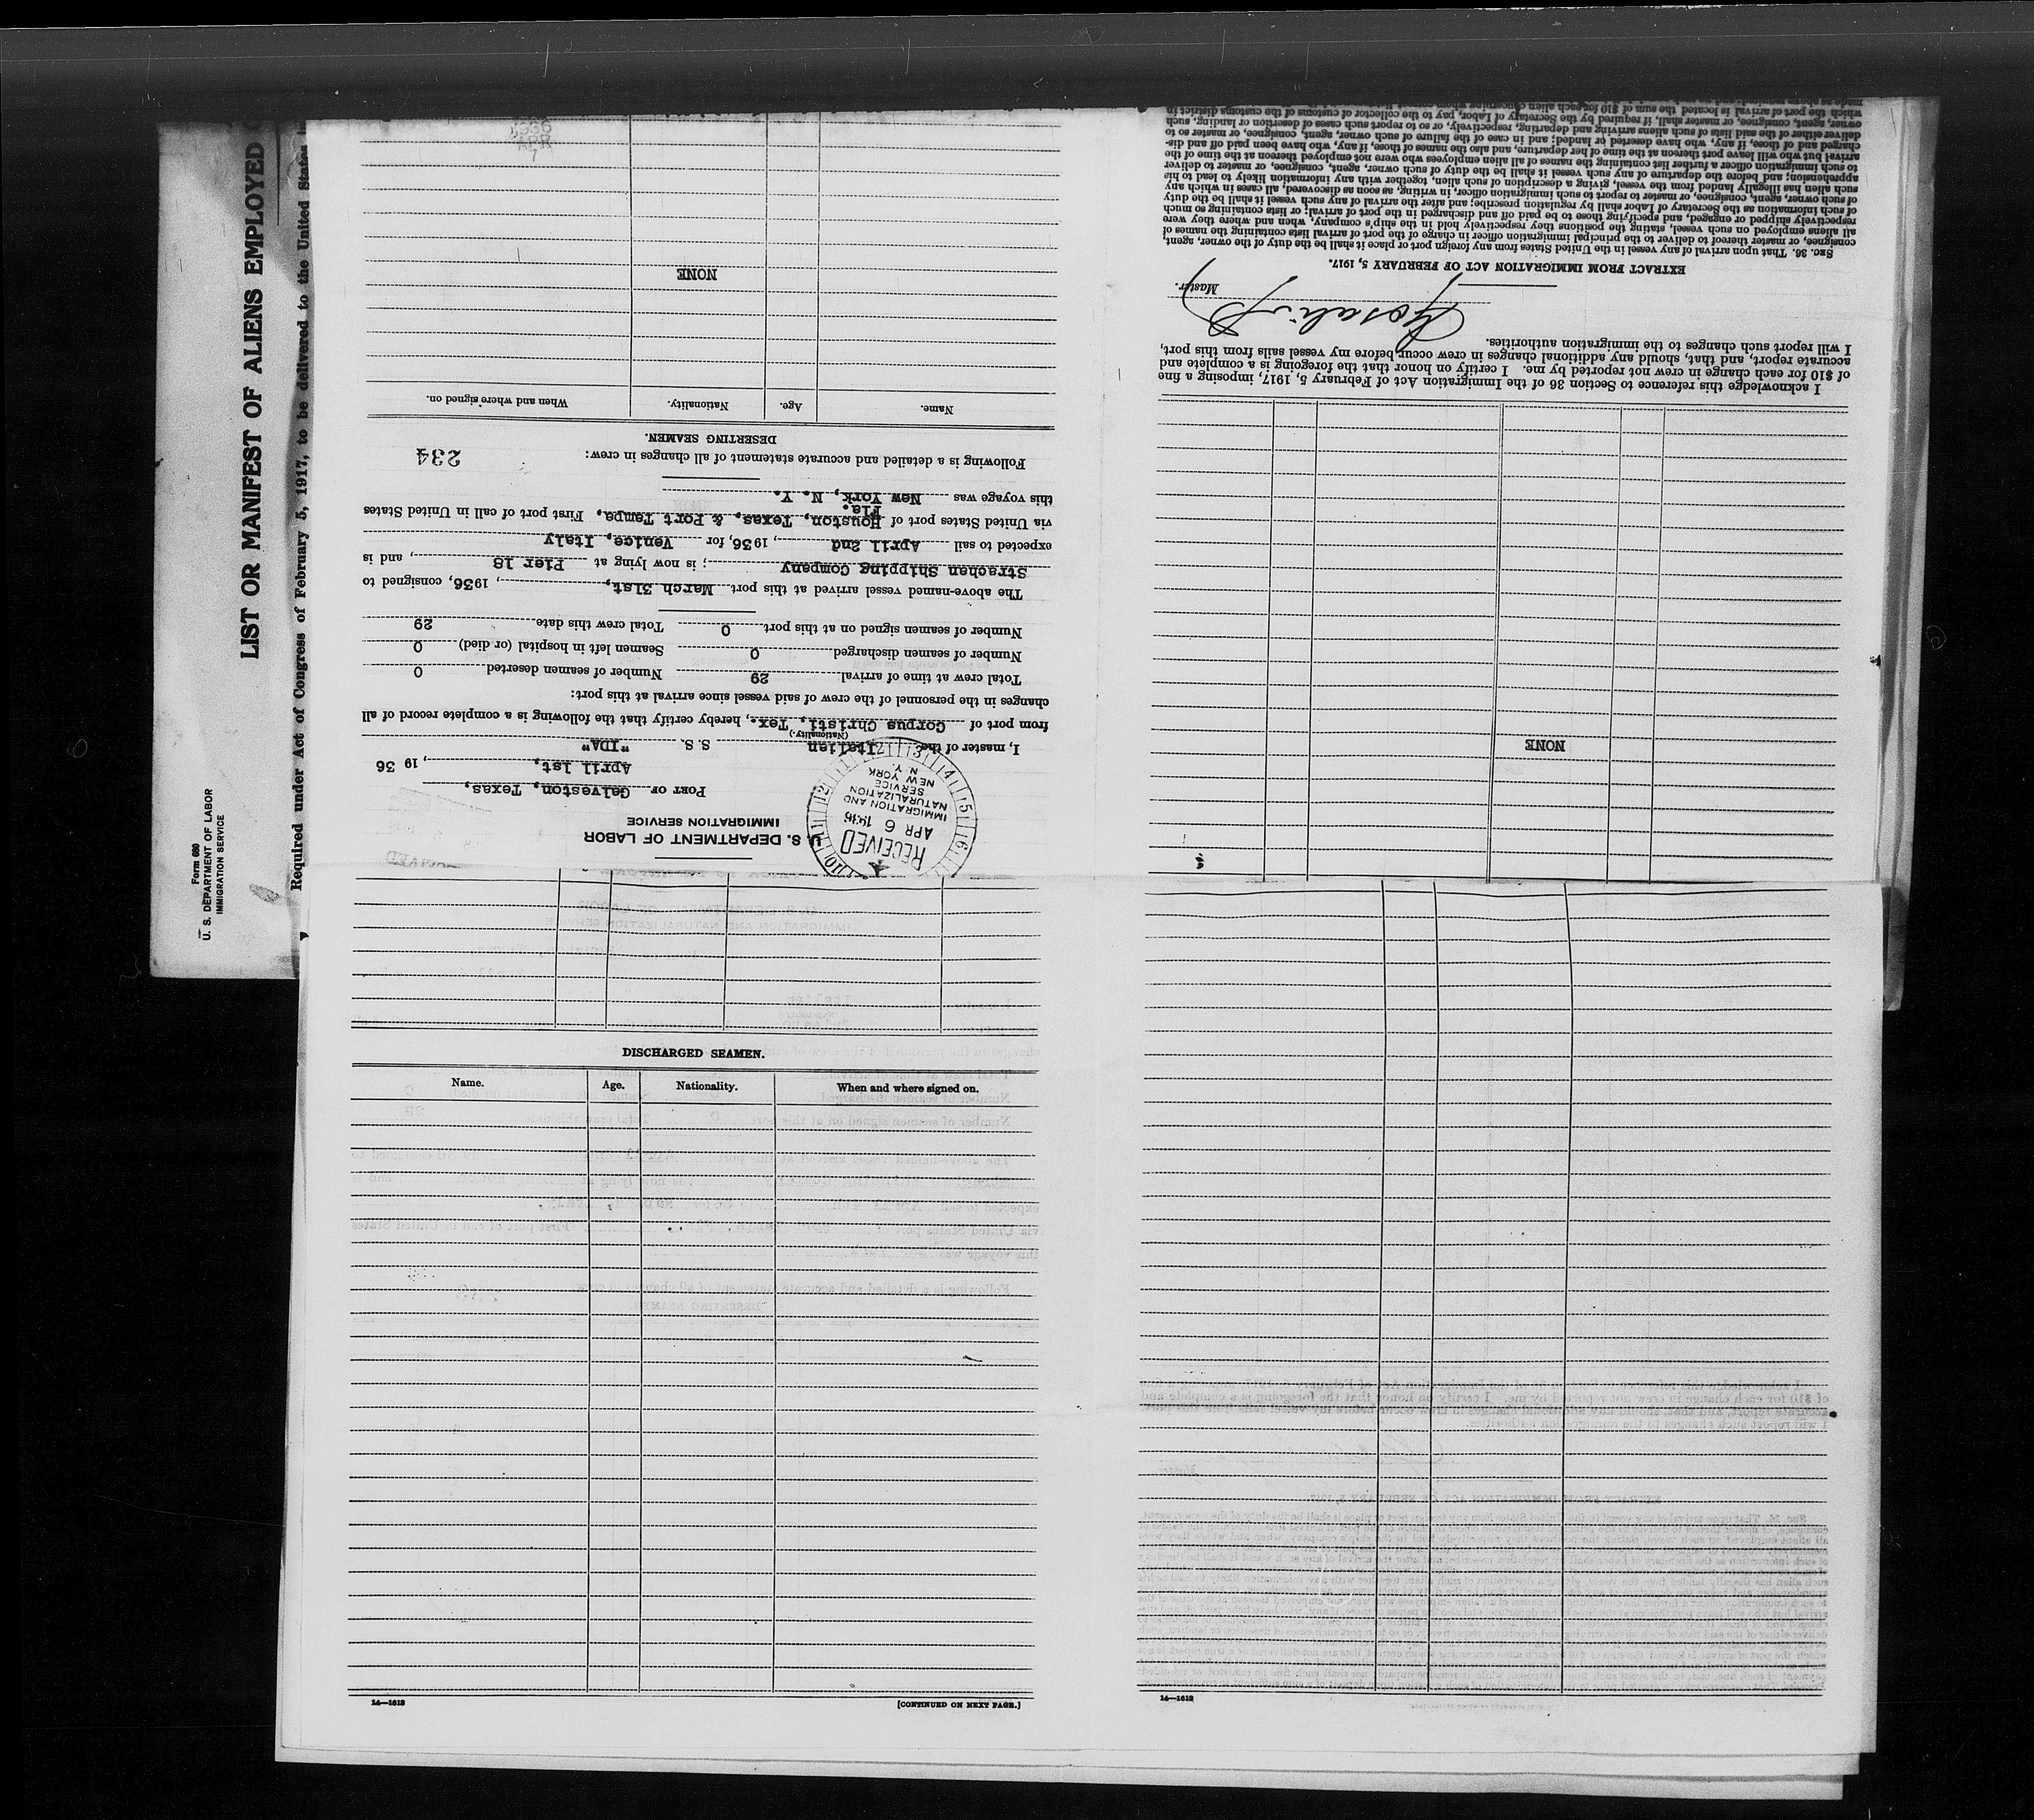 Form 680
U. S. DEPARTMENT OF LABOR
IMMIGRATION SERVICE
LIST OR MANIFEST OF ALIENS EMPLOYED
Required under Act of Congress of February 5, 1917, to be delivered to the United States
U. S. DEPARTMENT OF LABOR
IMMIGRATION SERVICE
RECEIVED
APR 6 1936
IMMIGRATION AND
NATURALIZATION
SERVICE
NEW YORK
N. Y.
PORT OF Galveston, Texas,
April 1st, , 19 36
I, master of the Italian S. S. "IDA"
(Nationality.)
from port of Corpus Christi, Tex., hereby certify that the following is a complete record of all
changes in the personnel of the crew of said vessel since arrival at this port:
Total crew at time of arrival 29 Number of seamen deserted 0
Number of seamen discharged 0 Seamen left in hospital (or died) 0
Number of seamen signed on at this port 0 Total crew this date 29
The above-named vessel arrived at this port March 31st, , 1936, consigned to
Strachan Shipping Company ; is now lying at Pier 18 , and is
expected to sail April 2nd , 1936, for Venice, Italy
via United States port of Houston, Texas, & Port Tampa, Fla. First port of call in United States
this voyage was New York, N. Y.
Following is a detailed and accurate statement of all changes in crew: 234
DESERTING SEAMEN.
Name. Age. Nationality. When and where signed on.
NONE
DISCHARGED SEAMEN.
Name. Age. Nationality. When and where signed on.
14—1613 [CONTINUED ON NEXT PAGE.]
NONE
I acknowledge this reference to Section 36 of the Immigration Act of February 5, 1917, imposing a fine
of $10 for each change in crew not reported by me. I certify on honor that the foregoing is a complete and
accurate report, and that, should any additional changes in crew occur before my vessel sails from this port,
I will report such changes to the immigration authorities.
Master.
EXTRACT FROM IMMIGRATION ACT OF FEBRUARY 5, 1917.
SEC. 36. That upon arrival of any vessel in the United States from any foreign port or place it shall be the duty of the owner, agent,
consignee, or master thereof to deliver to the principal immigration officer in charge of the port of arrival lists containing the names of
all aliens employed on such vessel, stating the positions they respectively hold in the ship's company, when and where they were
respectively shipped or engaged, and specifying those to be paid off and discharged in the port of arrival; or lists containing so much
of such information as the Secretary of Labor shall by regulation prescribe; and after the arrival of any such vessel it shall be the duty
of such owner, agent, consignee, or master to report to such immigration officer, in writing, as soon as discovered, all cases in which any
such alien has illegally landed from the vessel, giving a description of such alien, together with any information likely to lead to his
apprehension; and before the departure of any such vessel it shall be the duty of such owner, agent, consignee, or master to deliver
to such immigration officer a further list containing the names of all alien employees who were not employed thereon at the time of the
arrival but who will leave port thereon at the time of her departure, and also the names of those, if any, who have been paid off and dis-
charged and of those, if any, who have deserted or landed; and in case of the failure of such owner, agent, consignee, or master so to
deliver either of the said lists of such aliens arriving and departing, respectively, or so to report such cases of desertion or landing, such
owner, agent, consignee, or master shall, if required by the Secretary of Labor, pay to the collector of customs of the customs district in
which the port of arrival is located the sum of $10 for each alien concerning whom
14—1612